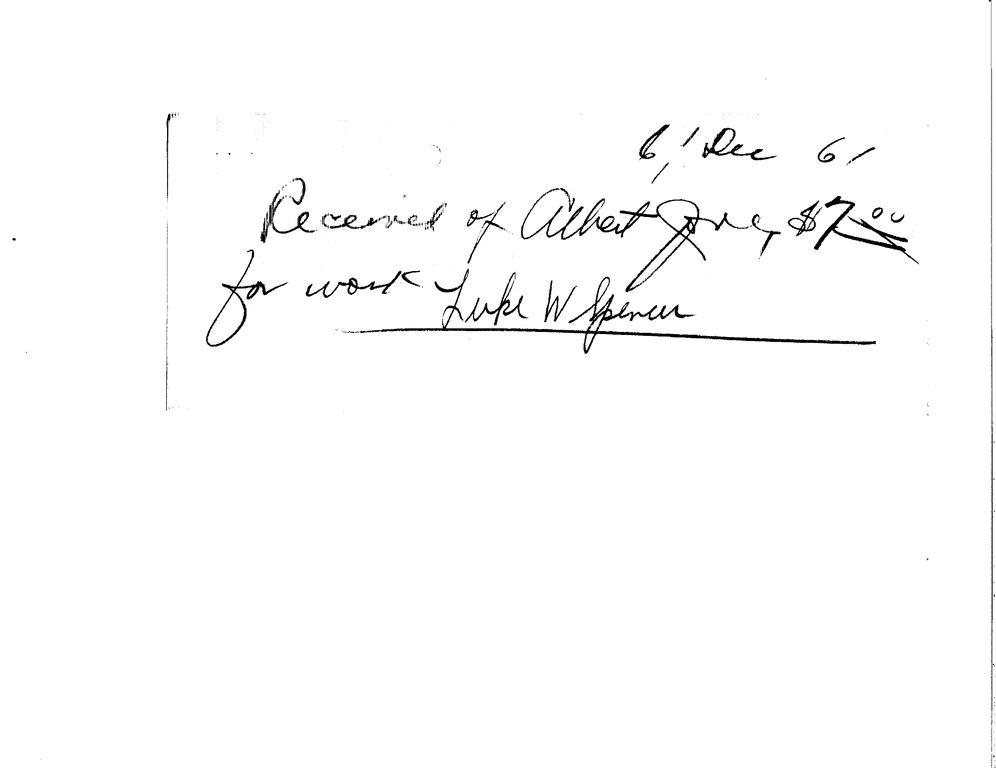 6 Dec 61
Received of Albert $7.00
for work
Luke W Spencer